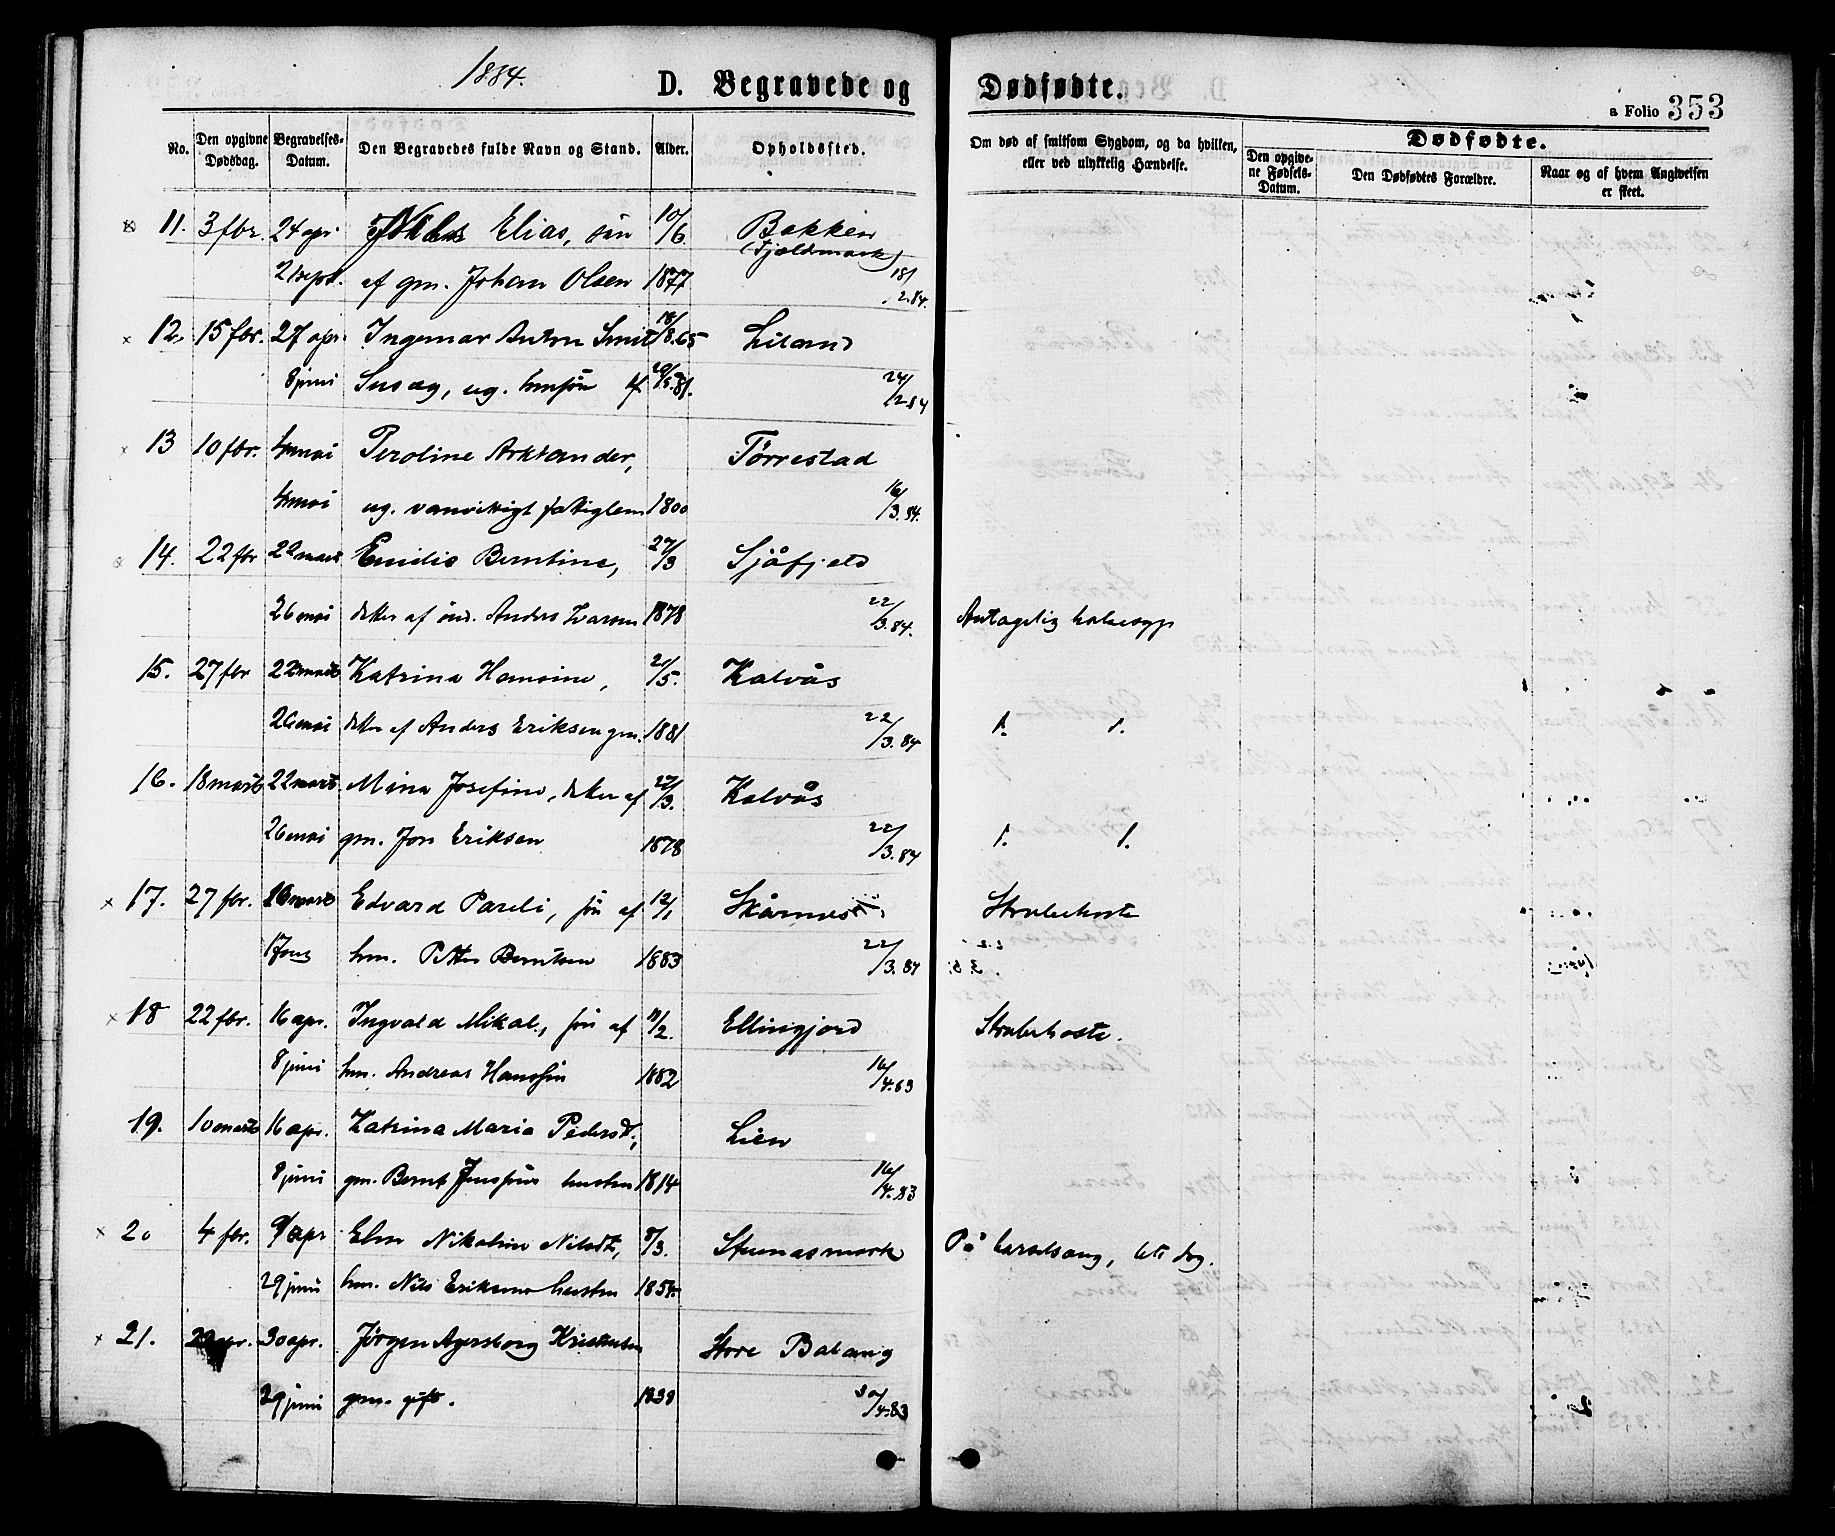 1884.
D. Begravede og Dødfødte.
a Folio 353
No.
Den opgivne Dødsdag.
Begravelses-Datum.
Den Begravedes fulde Navn og Stand.
Alder.
Opholdssted.
Om død af smitsom Sygdom, og da hvilken, eller ved ulykkelig Hændelse.
Dødfødte.
Den opgivne Fødsels-Datum.
Den Dødfødtes Forældre.
Naar og af hvem Angivelsen er skeet.
11. 3 fbr. 24 apr. Elias, søn 10/6 Bakken
(Fjeldmark)
21 sept. af gm. Johan Olsen 1877 18/2.84.
12. 15 fbr. 27 apr. Ingemar Anton Smit 18/8.65 Liland
8 juni ug. 20/5.81. 24/2.84
13 10 fbr. 4 mai Peroline Arktander, Tørrestad
4 mai ug. vanvittigt fattiglem 1800 16/3.84.
14. 22 fbr 22 marts Emilie Berntine, 27/3 Sjåfjeld
26 mai datter af ind. Anders Larsen 1878 22/3.84. Antagelig halsesyge
15. 27 fbr 22 marts Katrina Hansine, 21/5. Kalvås
26 mai datter af Anders Eriksen gm. 1881 22/3.84 1. 1.
16. 18 marts 22 marts Mina Josefine, datter af 27/3. Kalvås
26 mai gm. Jon Eriksen 1878 22/3.84 1. 1.
17. 27 fbr. 16 marts Edvard Pareli, søn af 12/1 Skårnes Strubehoste
17 hm. Petter Berntsen 1883 22/3.84
18 22 fbr. 16 apr. Ingvald Mikal, søn af 11/2. Ellingjord Strubehoste.
8 juni hm. Andreas Hanssen 1882 16/4.83
19. 10 marts 16 apr. Katrina Maria Pedersdt, Lien
8 juni gm. Bernt Jenssens hustru 1814 16/4.83
20 4 fbr. 9 apr Elen Nikoline Nilsdt, 8/3. Stunesmark På barselsang, 6te dag.
29 juni hm. Nils Eriksens hustru 1854
21. 30 apr. Jörgen Agersborg Store Balang
29 juni gm. gift. 1838 30/4.83